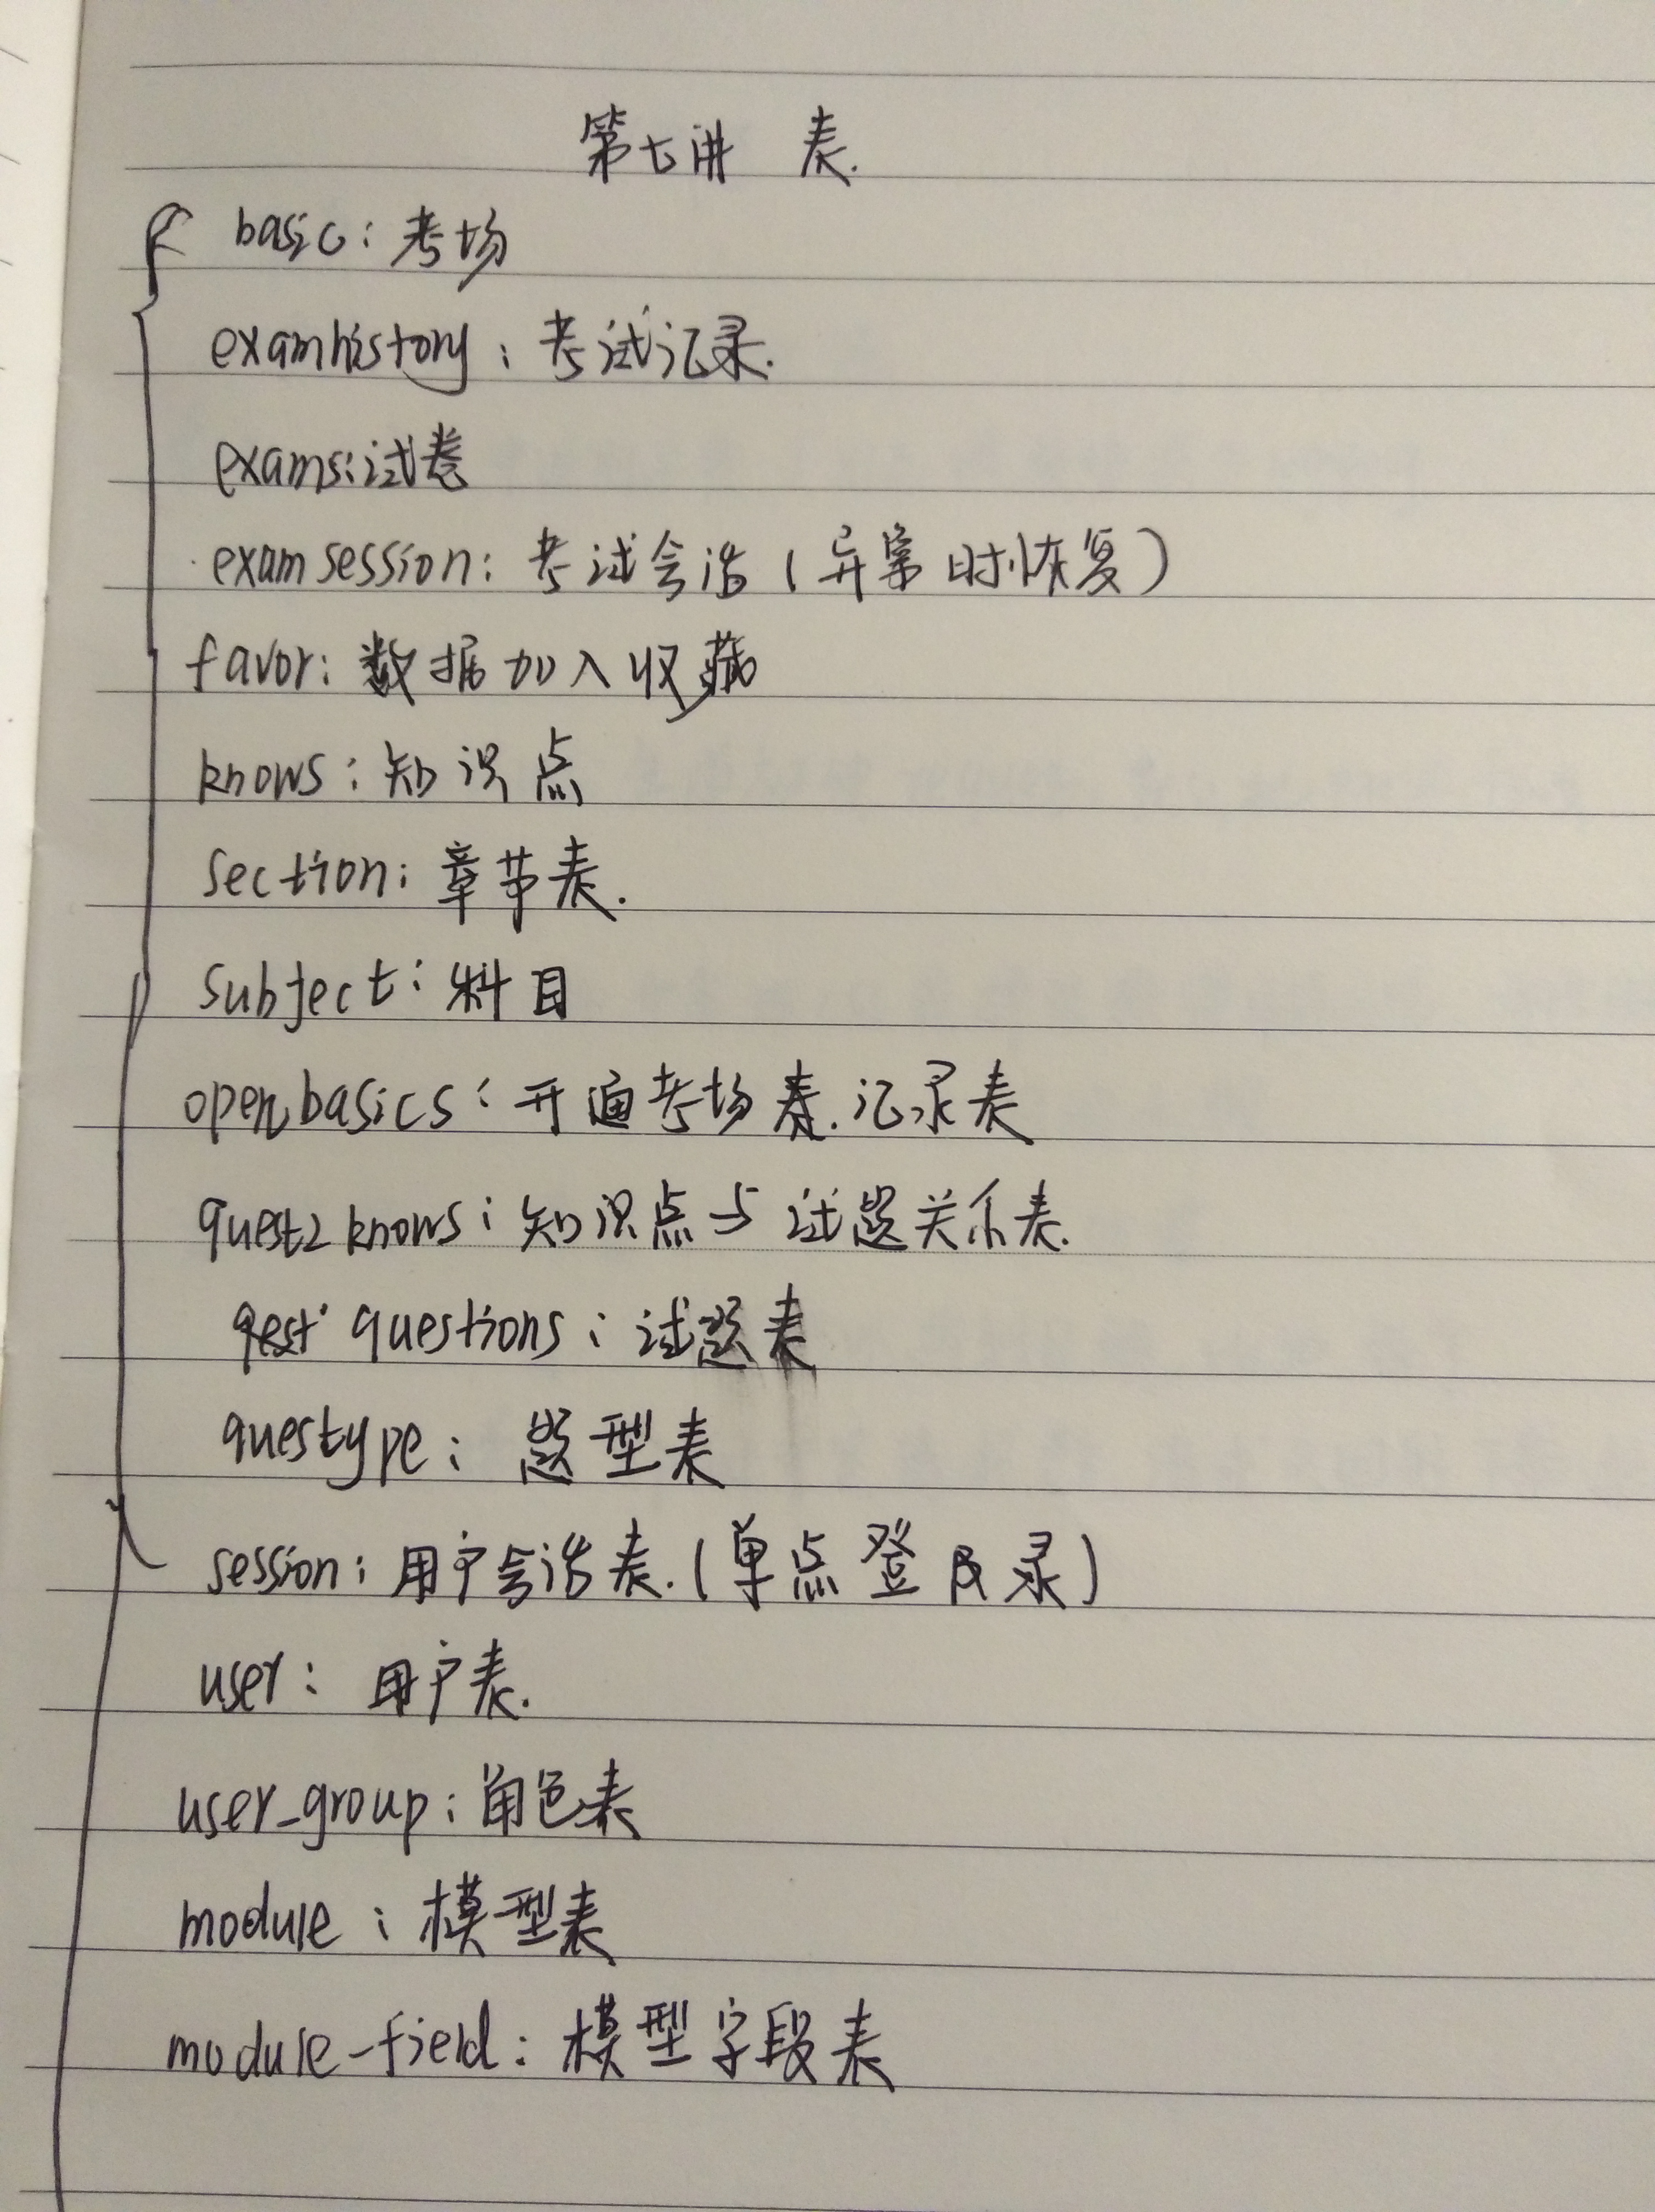 第七讲 表.
basic: 考场
examhistory: 考试记录.
exams: 试卷
examsession: 考试会话(异常时恢复)
favor: 数据加入收藏
knows: 知识点
section: 章节表.
subject: 科目
openbasics: 开通考场表.记录表
quest2knows: 知识点与试题关系表.
qest questions: 试题表
questype: 题型表
session: 用户会话表.(单点登录)
user: 用户表.
user_group: 角色表
module: 模型表
module-field: 模型字段表